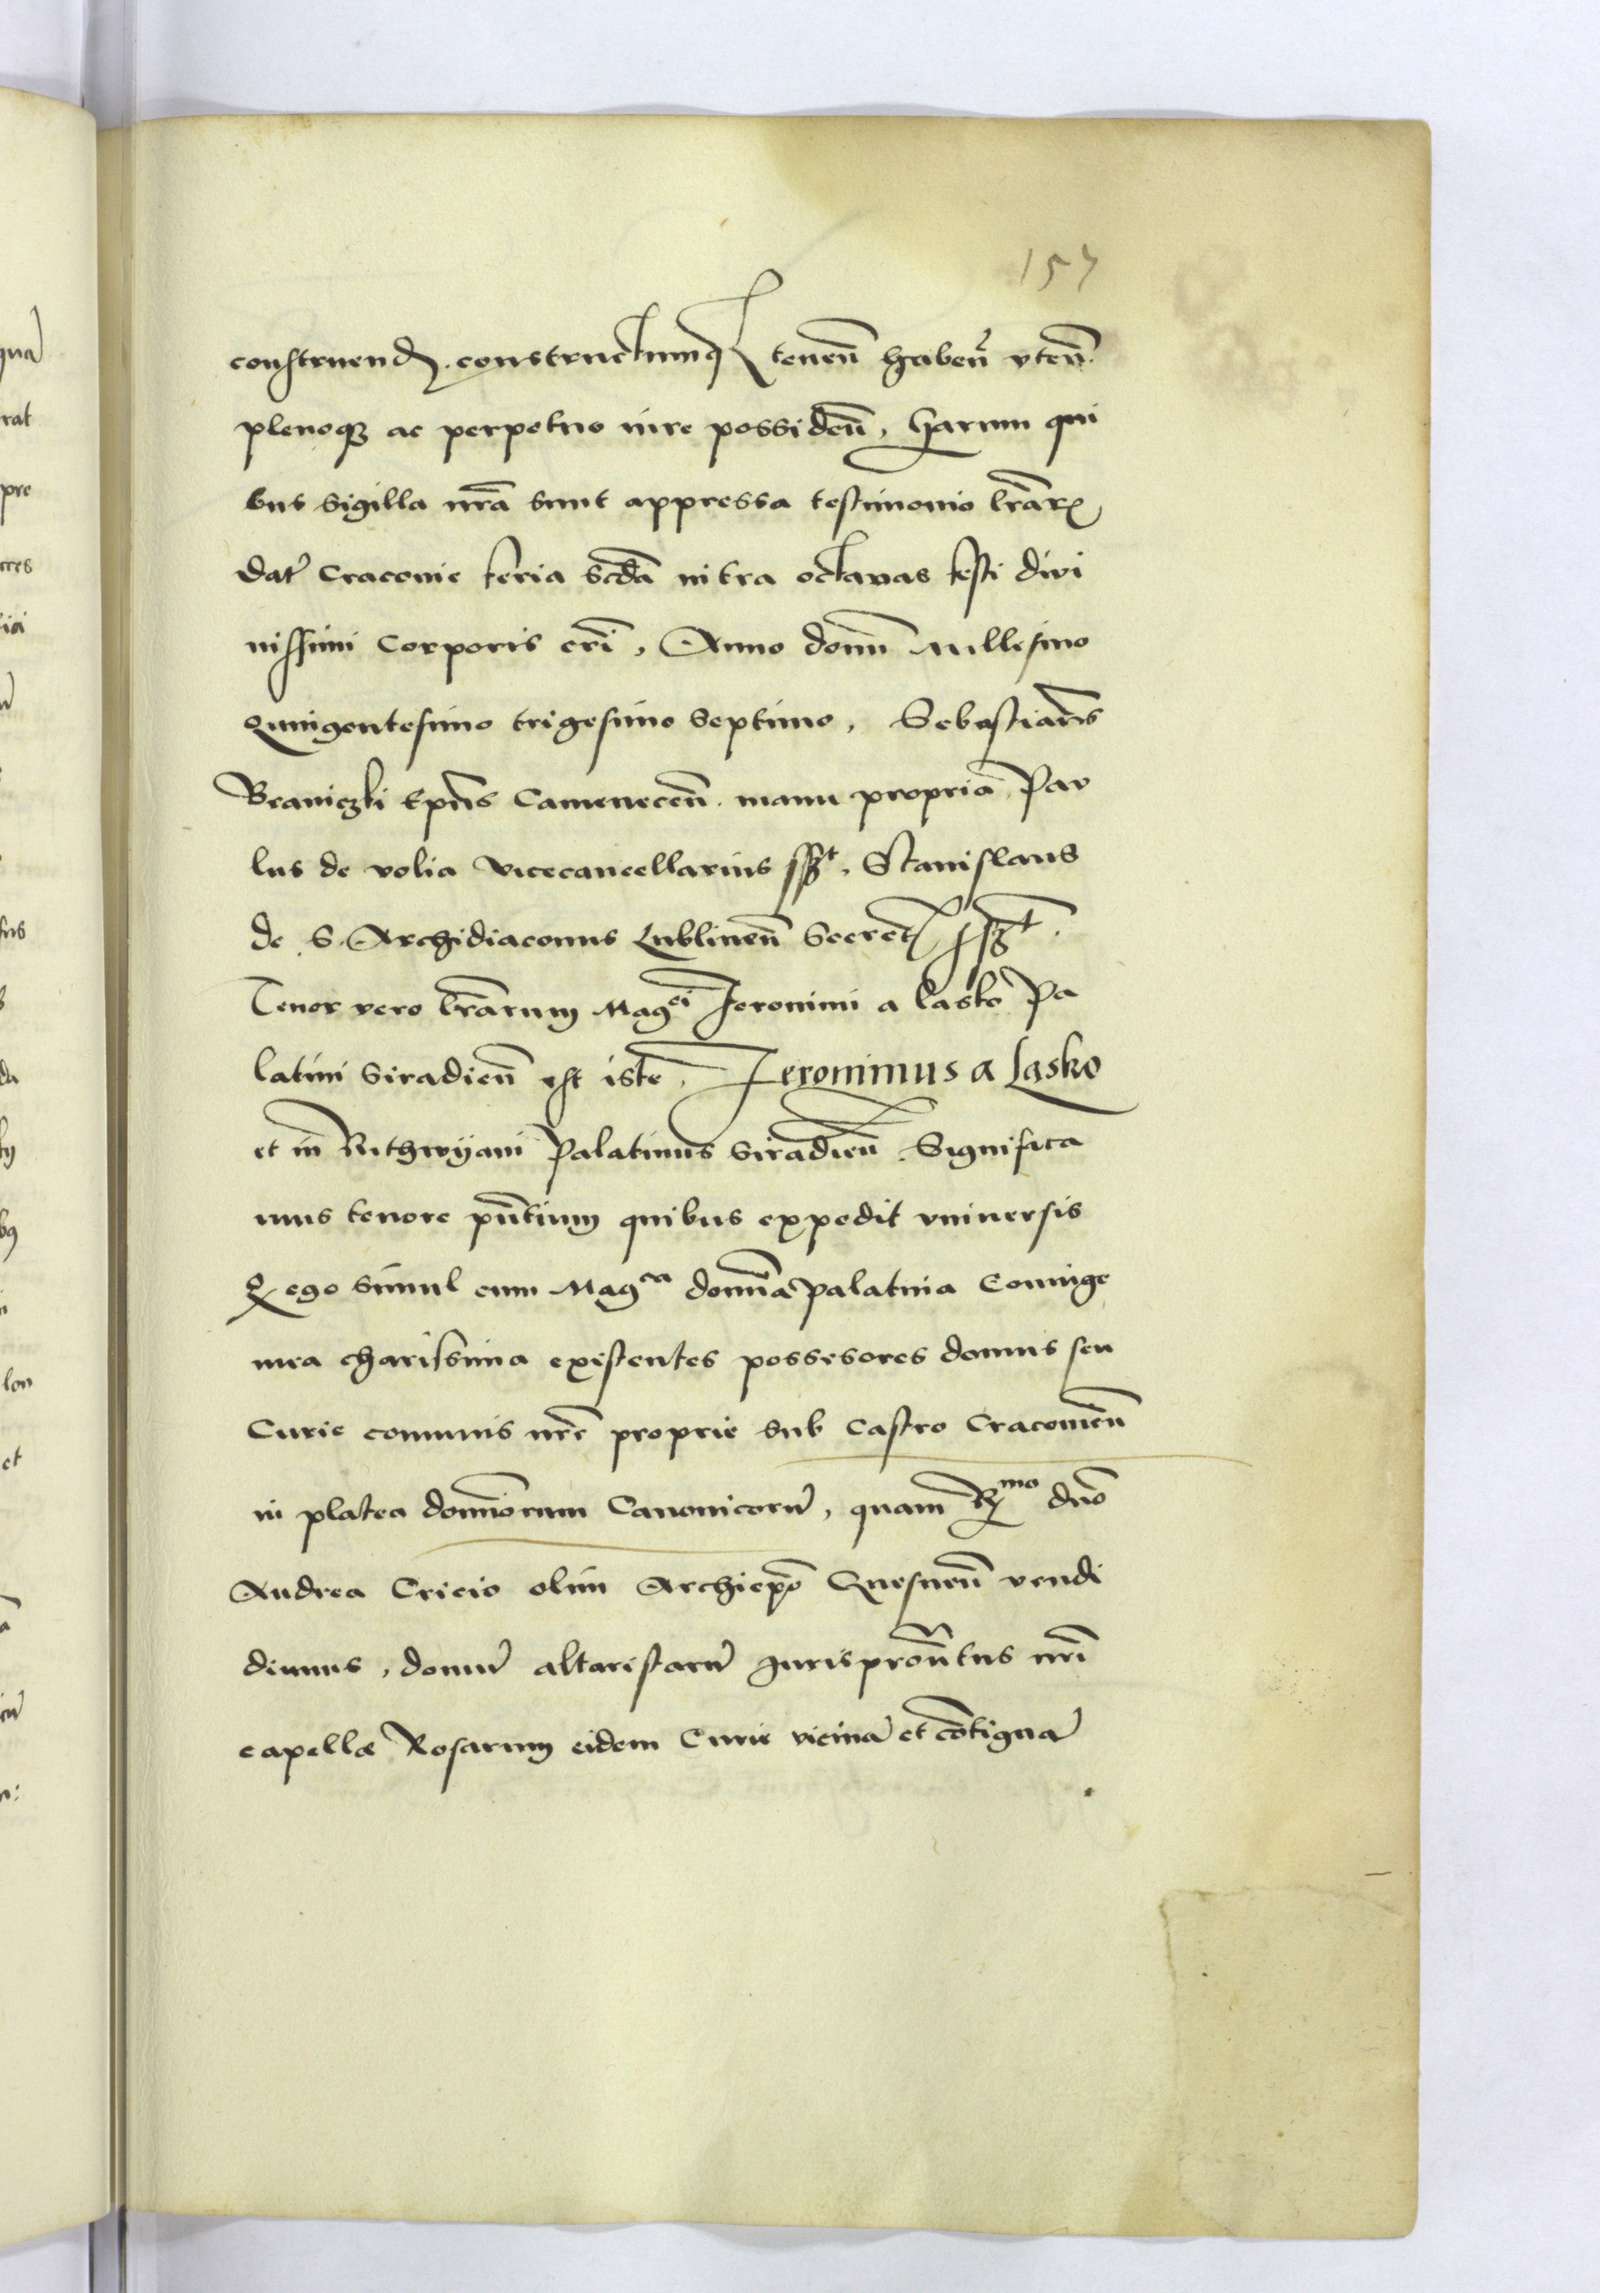 157
construend. constructumq tenen̄ haben̄ vten̄.
plenoqz ac perpetuo iure possiden̄, Harum qui
bus sigilla nr̄a sunt appressa testimonio lr̄arꝝ
dat̄ Cracovie feria scd̄a infra octavas festi divi
nissimi Corporis cr̄i, Anno domn̄ Millesimo
Quingentesimo trigesimo septimo, Sebastian̄s
Braniczki Ep̄us Camenecen̄. manu propria Pav
lus de volia vicecancellarius sszt, Stanislaus
de S. Archidiaconus Lublinen̄ Secret sszt.
Tenor vero lr̄arum Magci Jeronimi a Lasko Pa
latini Siradien̄ est iste, Jeronimus a Lasko
et in Rithwyani Palatinus Siradien̄. Significa
mus tenore pn̄tium quibus expedit vniversis
Q ego simul cum Magca domn̄a palatina Coniuge
mea charissima existentes possesores domus seu
Curie comunis nr̄e proprie sub Castro Cracovien̄
in platea domn̄orum Canonicorū, quam Rmo dn̄o
Andrea Cricio olim Archiep̄o Gnesnen̄ vendi
dimus, domū altaristarū Jurispron̄tus nr̄i
capellæ Rosarum eidem Curie vicinā et cōtiguā